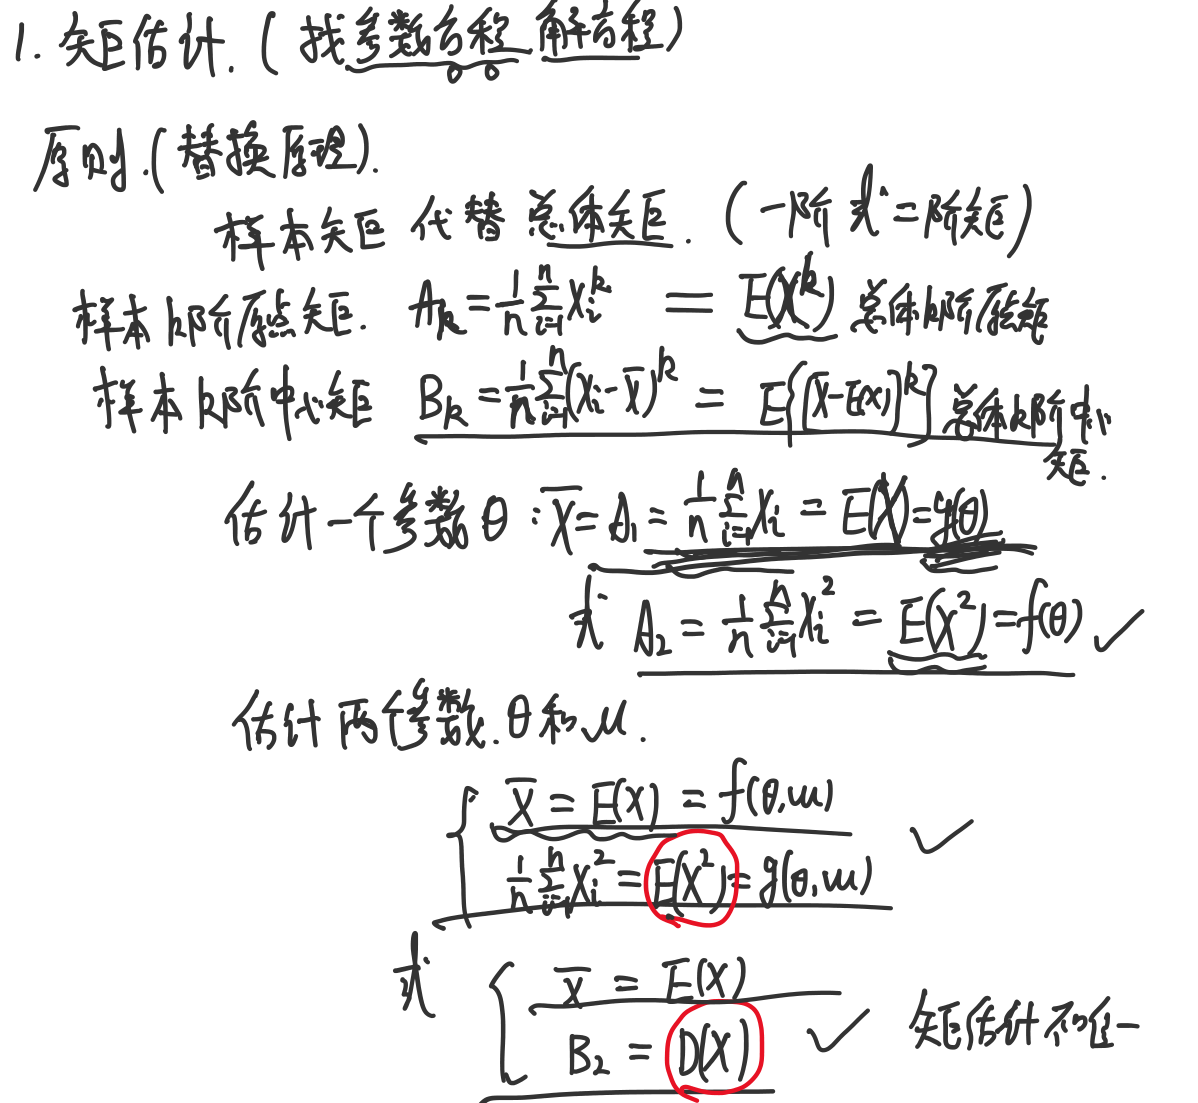 1. 矩估计. (找参数方程, 解方程)
原则.(替换原理).
样本矩 代替 总体矩. (一阶或二阶矩)
样本k阶原点矩. A_k = 1/n ∑_{i=1}^{n} X_i^k = E(X^k) 总体k阶原点矩
样本k阶中心矩 B_k = 1/n ∑_{i=1}^{n} (X_i - X̄)^k = E{[X-E(X)]^k} 总体k阶中心
矩.
估计一个参数θ: X̄ = A_1 = 1/n ∑_{i=1}^{n} X_i = E(X) = g(θ)
或 A_2 = 1/n ∑_{i=1}^{n} X_i^2 = E(X^2) = f(θ) ✓
估计两个参数. θ和μ.
{ X̄ = E(X) = f(θ,μ)
1/n ∑_{i=1}^{n} X_i^2 = E(X^2) = g(θ,μ) ✓
或 { X̄ = E(X)
B_2 = D(X) ✓ 矩估计不唯一